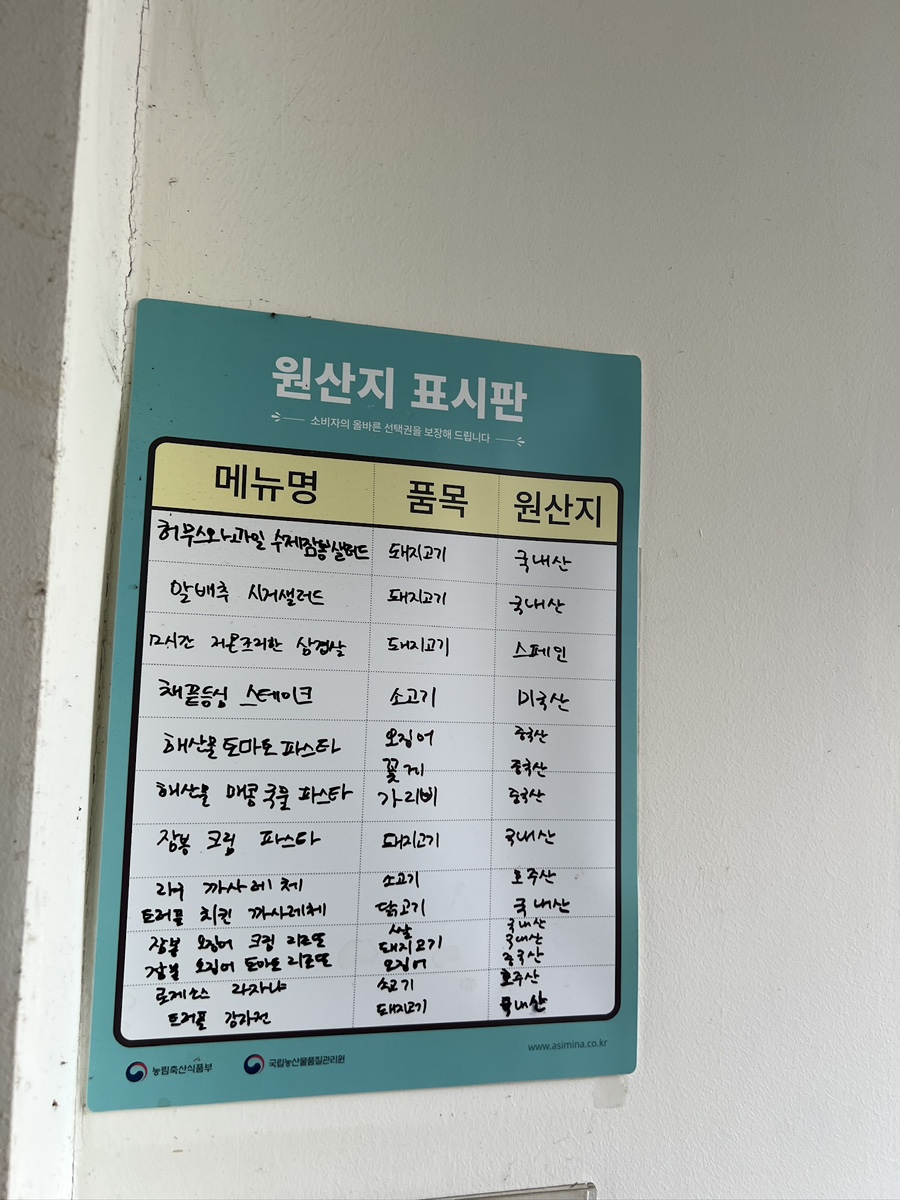 원산지 표시판
소비자의 올바른 선택권을 보장해 드립니다
메뉴명 품목 원산지
허무스와과일 수제잠봉샐러드 돼지고기 국내산
알배추 시저샐러드 돼지고기 국내산
12시간 저온조리한 삼겹살 돼지고기 스페인
채끝등심 스테이크 소고기 미국산
해산물토마토파스타 오징어 중국산
꽃게 중국산
해산물 매콤국물 파스타 가리비 중국산
잠봉 크림 파스타 돼지고기 국내산
라구 까사레체 소고기 호주산
트러플 치킨 까사레체 닭고기 국내산
쌀 국내산
잠봉 오징어 크림 리조또 돼지고기 국내산
잠봉 오징어 토마토 리조또 오징어 중국산
로제소스 라자냐 소고기 호주산
트러플 감자전 돼지고기 국내산
www.asimina.co.kr
농림축산식품부 국립농산물품질관리원